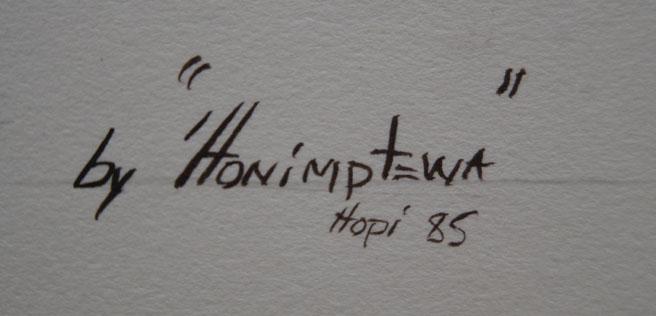 by "Honimptewa"
Hopi 85